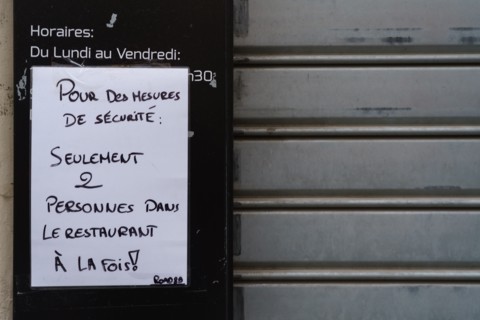 Horaires:
Du Lundi au Vendredi:
h30
POUR DES MESURES
DE SÉCURITÉ:
SEULEMENT
2
PERSONNES DANS
LE RESTAURANT
À LA FOIS!